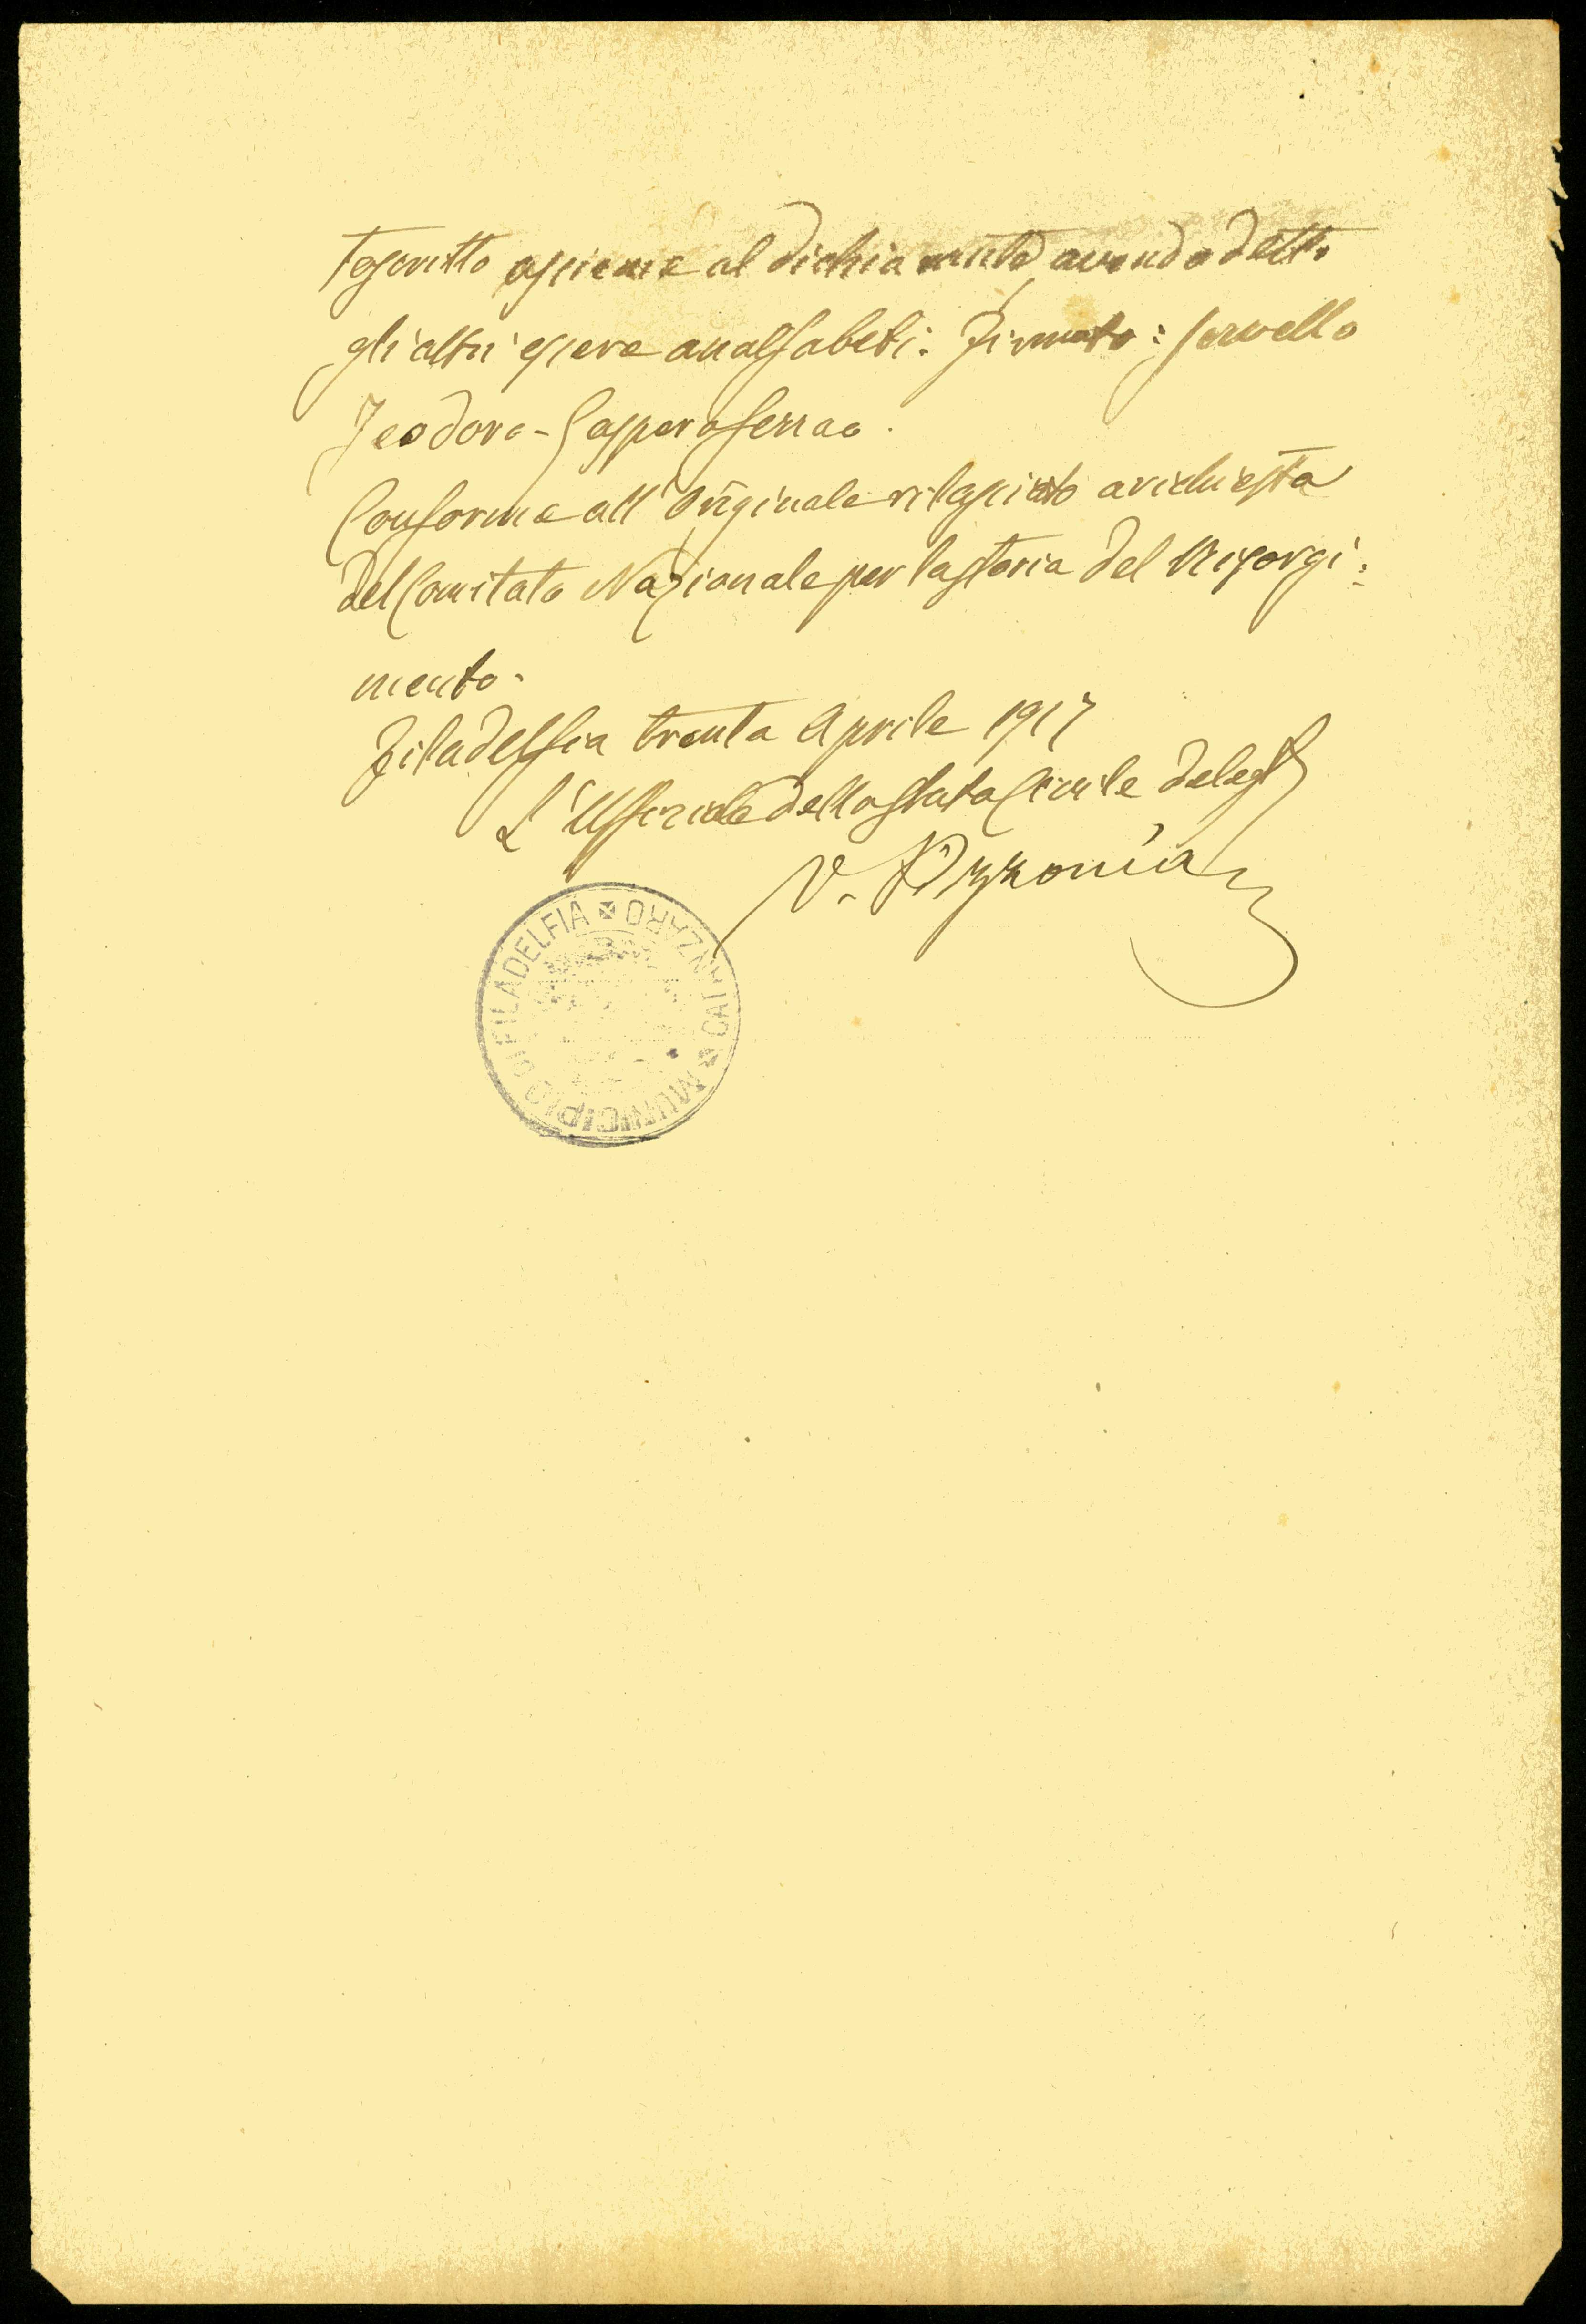 toscritto assieme al dichiarante, avendo detto
gli altri essere analfabeti. Firmato: Servello
Teodoro - Gasparo Serrao.
Conforme all'Originale rilasciato a richiesta
del Comitato Nazionale per la storia del Risorgi=
mento.
Filadelfia trenta Aprile 1917
L'Uffiziale dello Stato Civile Deleg
V.
MUNICIPIO DI FILADELFIA * CATANZARO *